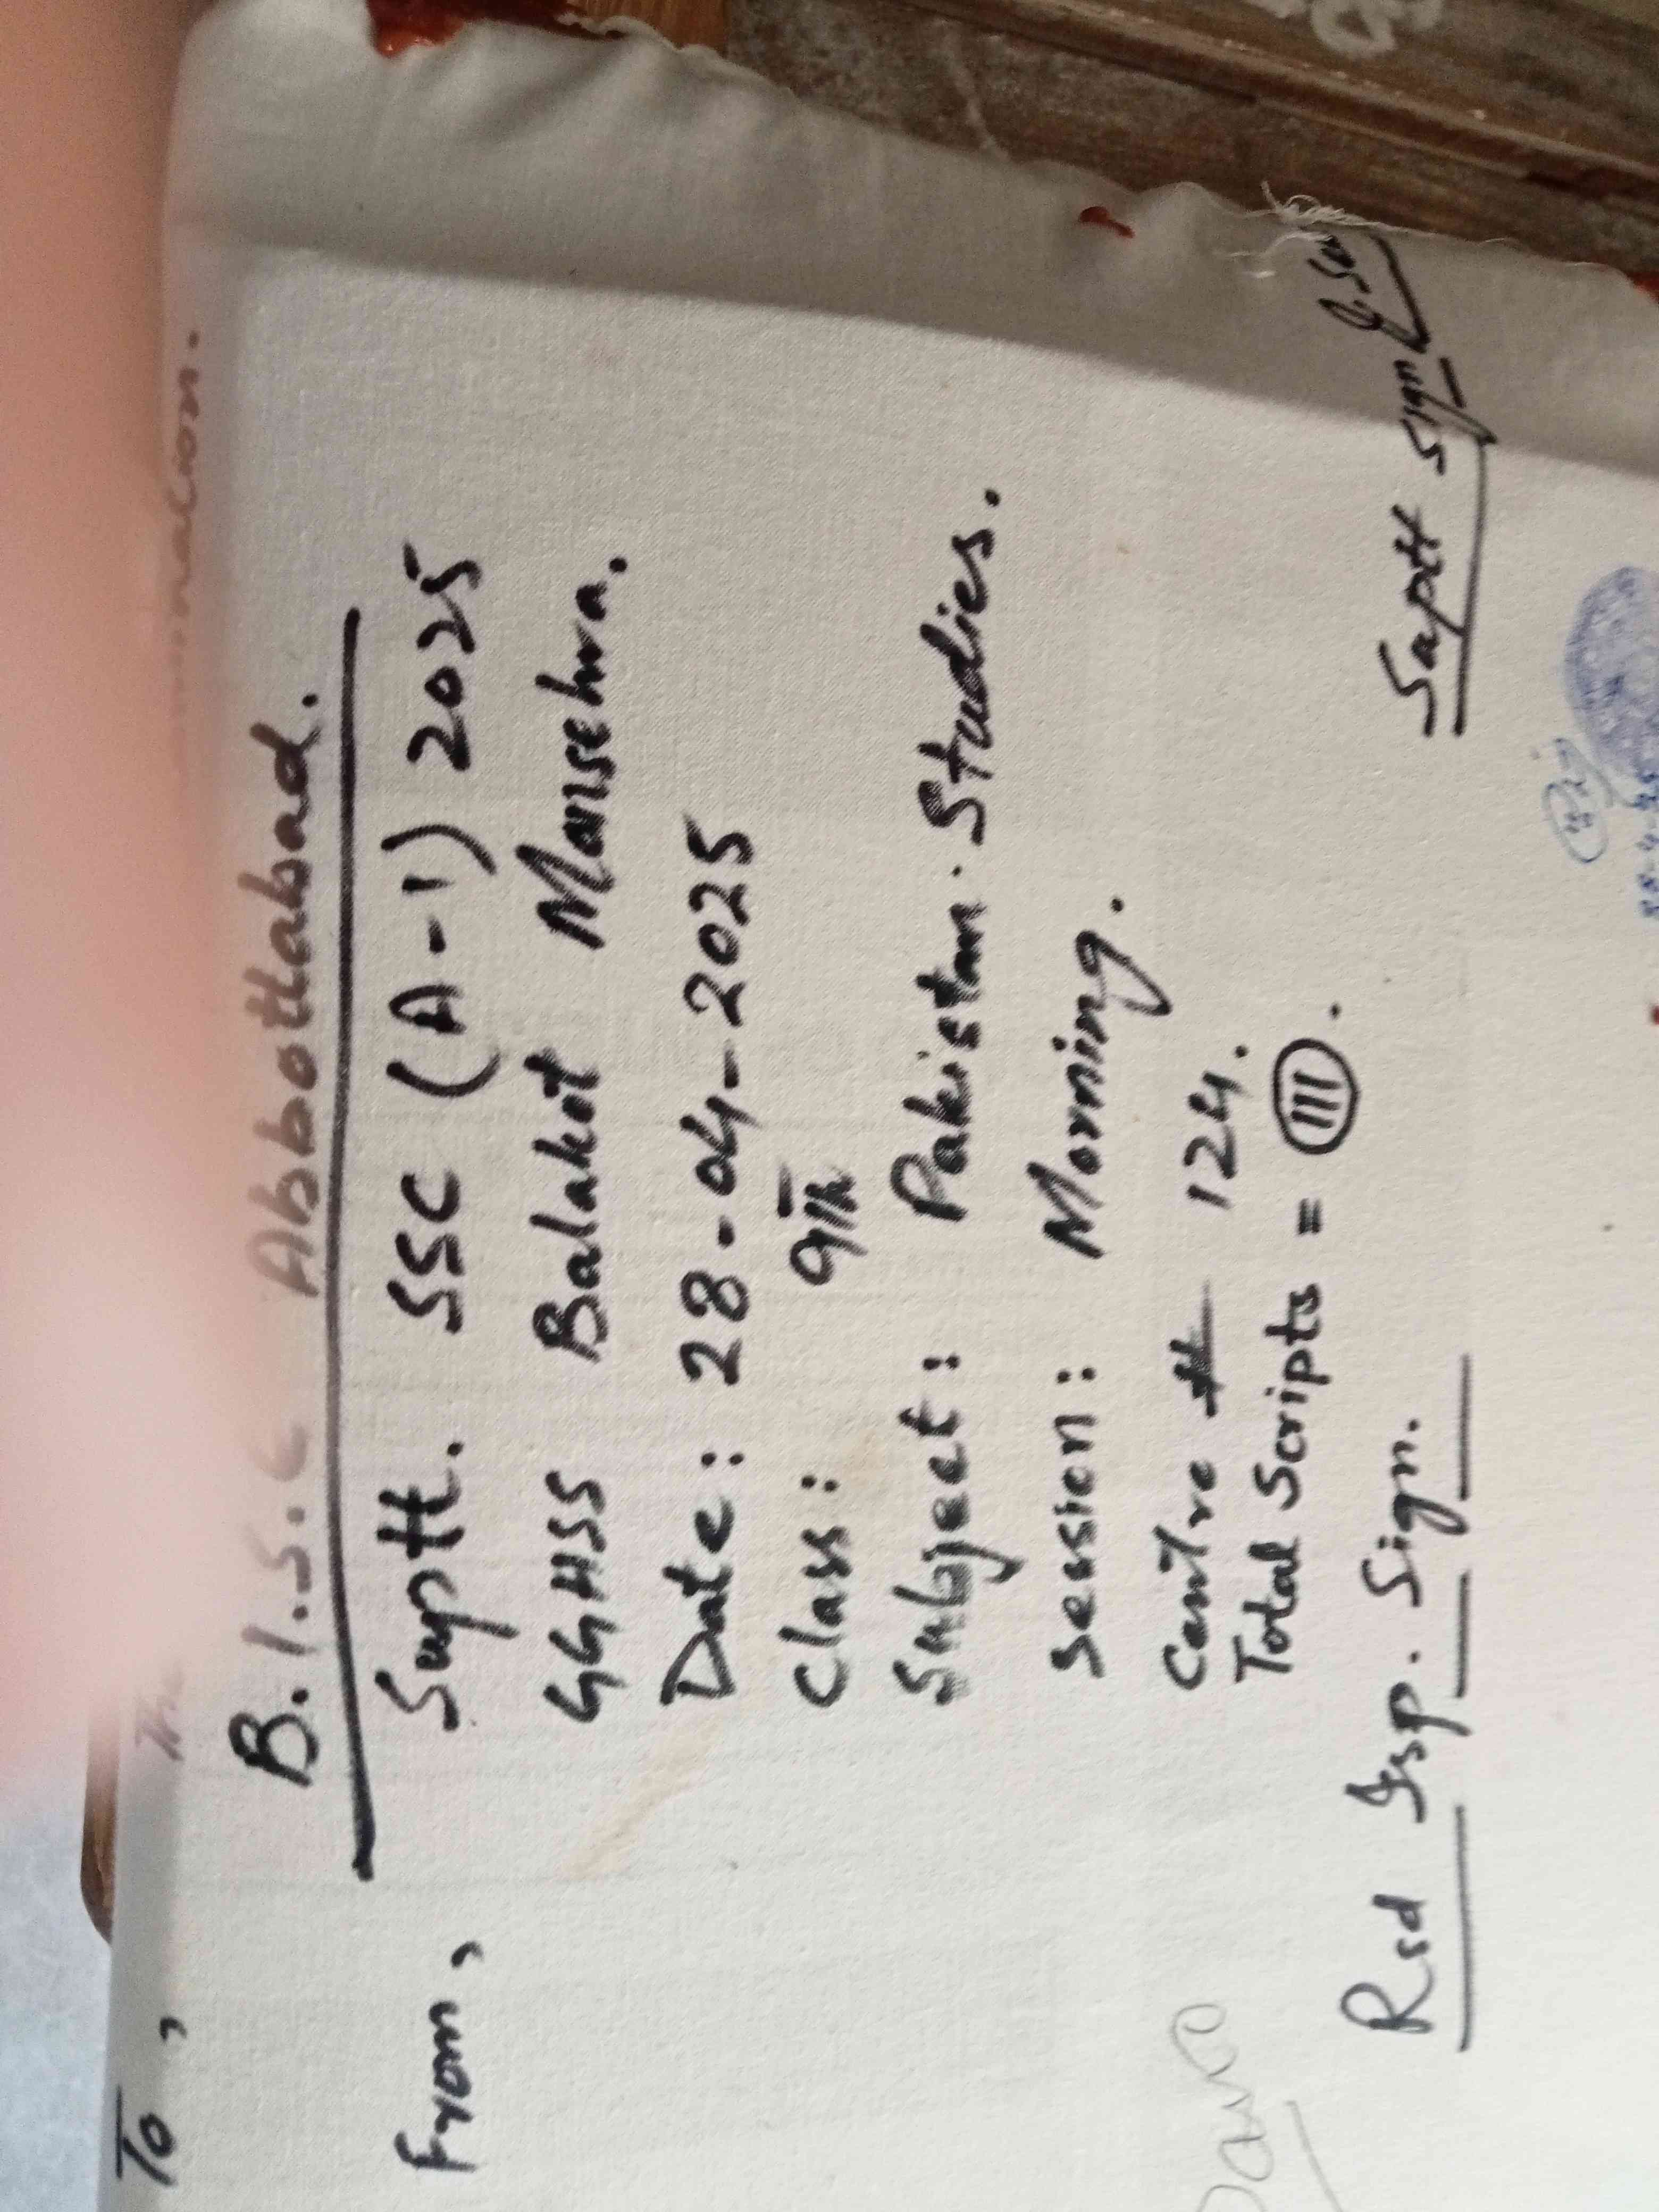 To,
B.I.S.E Abbottabad.
From,
Suptt. SSC (A-1) 2025
GGHSS Balakot Mansehra.
Date: 28-04-2025
Class: 9th
Subject: Pakistan. Studies.
Session: Morning.
Centre # 124.
Total Scripts = III.
Rsd Isp. Sign. Suptt Sign